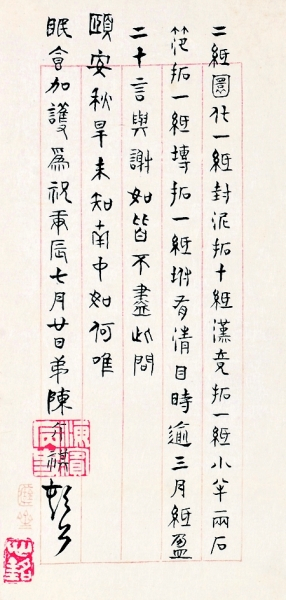 二紙圜化一紙封泥拓十紙漢竟拓一紙小半兩石
笵拓一紙塼拓一紙坿有清目時逾三月紙盈
二十言與謝如皆不盡此問
頤安秋旱未知南中如何唯
眠食加護爲祝庚辰七月廿日弟陳介祺頓首